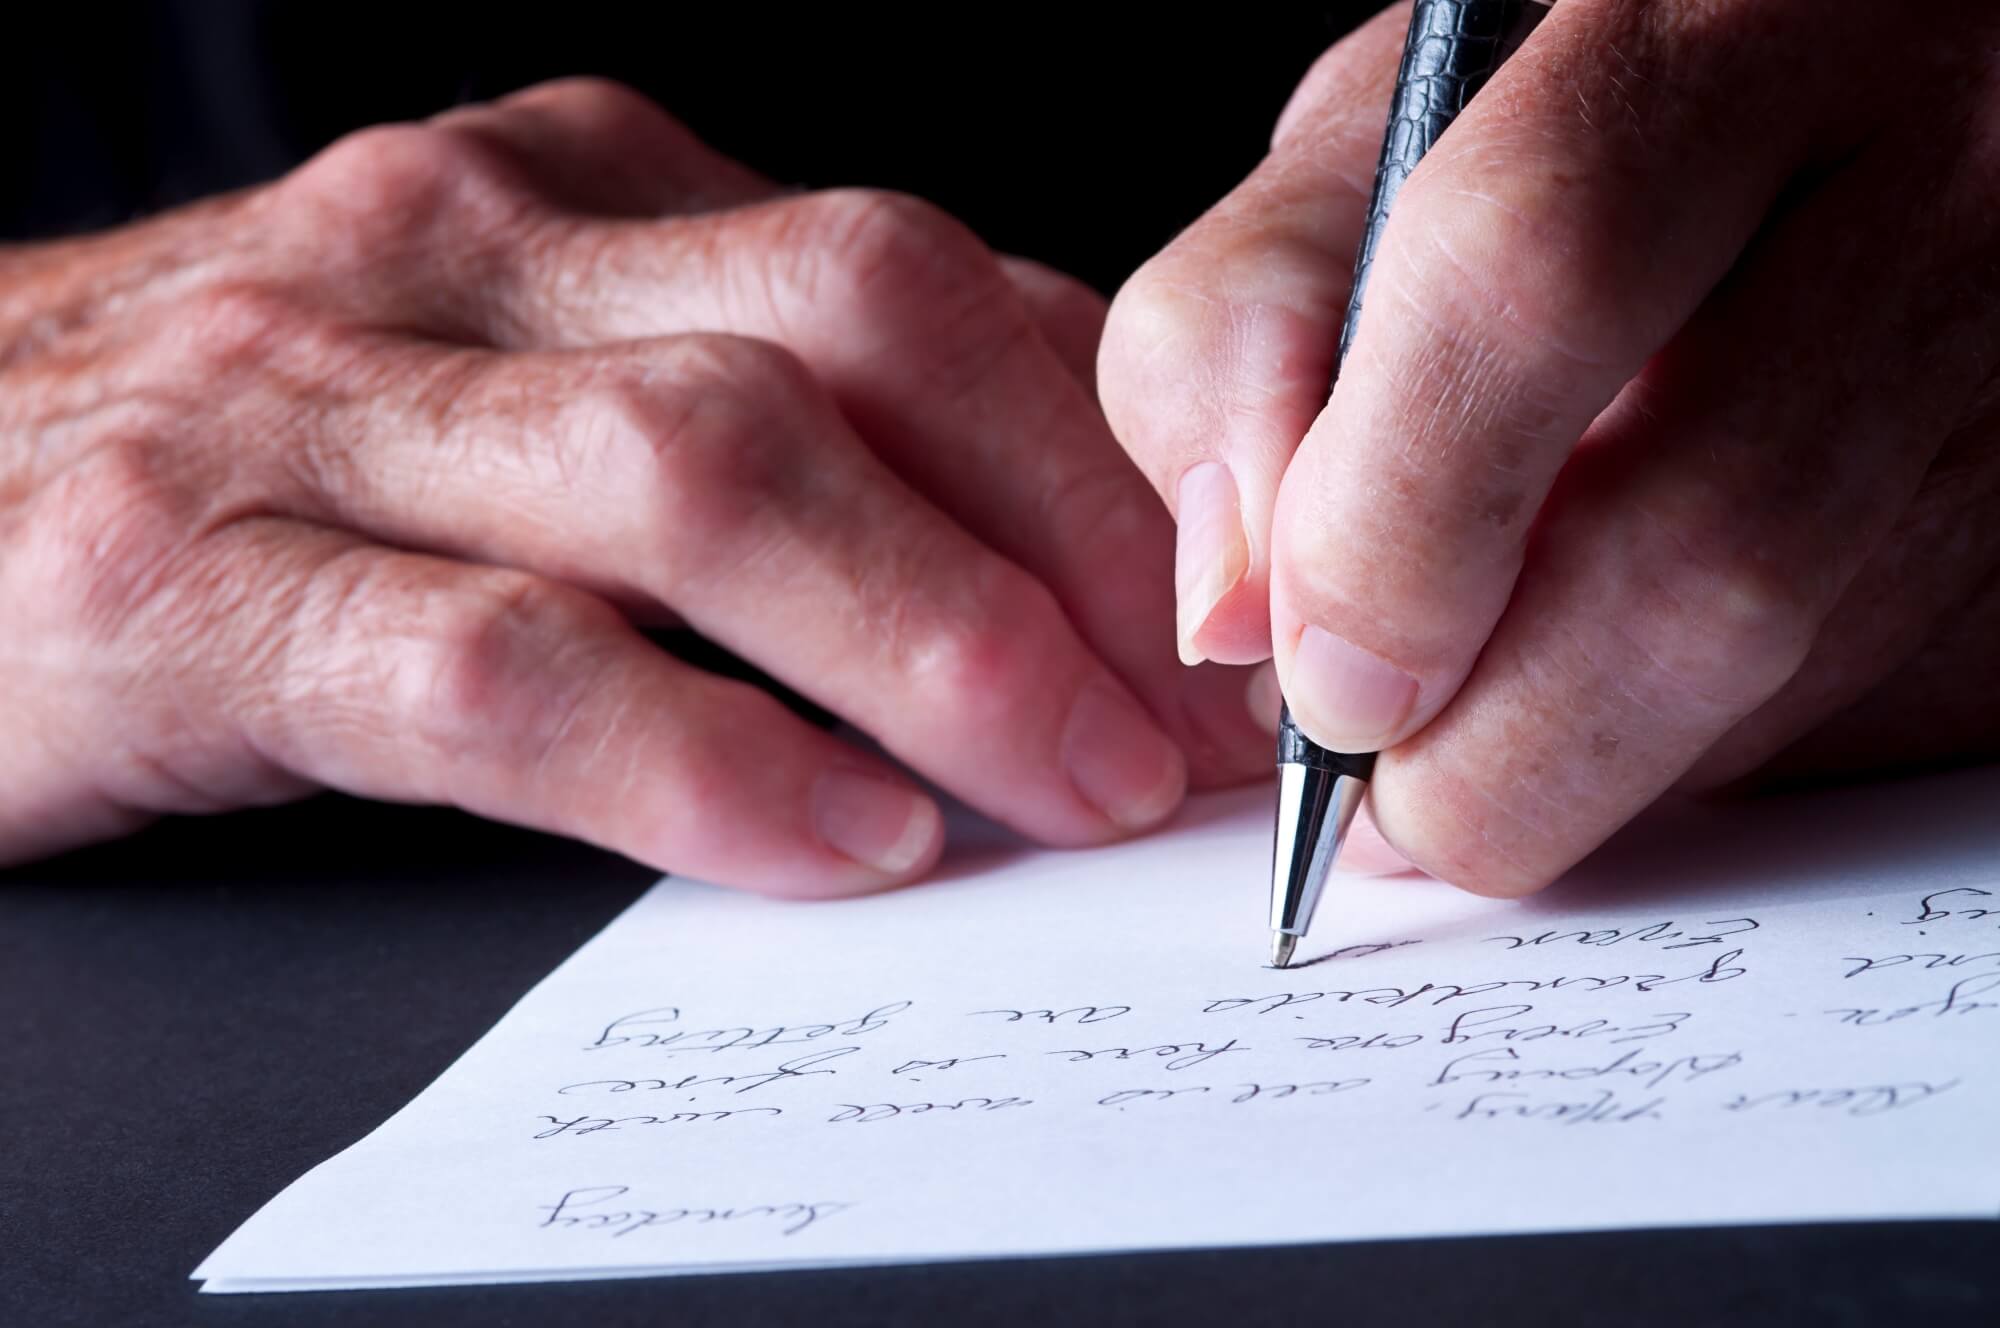 Sunday
Dear Mary,
Hoping all is well with
you. Everyone here is fine
and grandkids are getting
big. Evan is